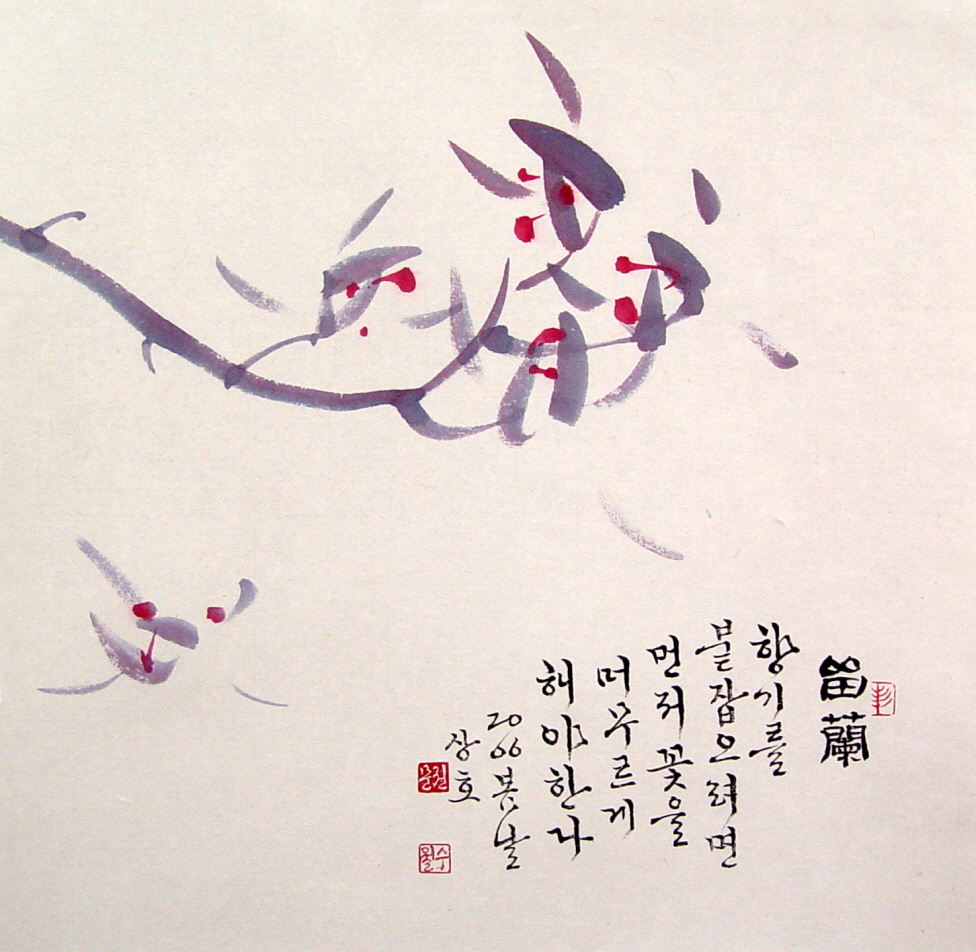 留蘭
향기를
붙잡으려면
먼저 꽃을
머무르게
해야 한다
2006 봄날
상호